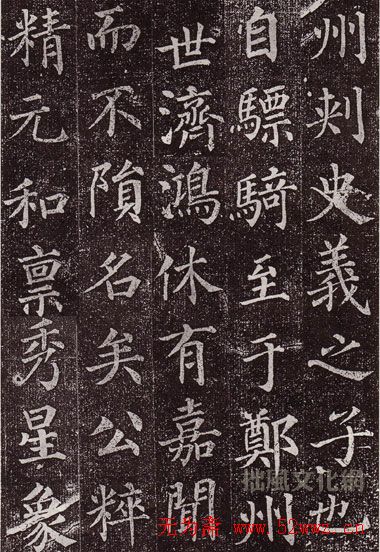 州刾史義之子也
自驃騎至于鄭州
世濟鴻休有嘉聞
而不隕名矣公粹
精元和禀秀星象
拙風文化網
无为斋 www.52wwz.cn